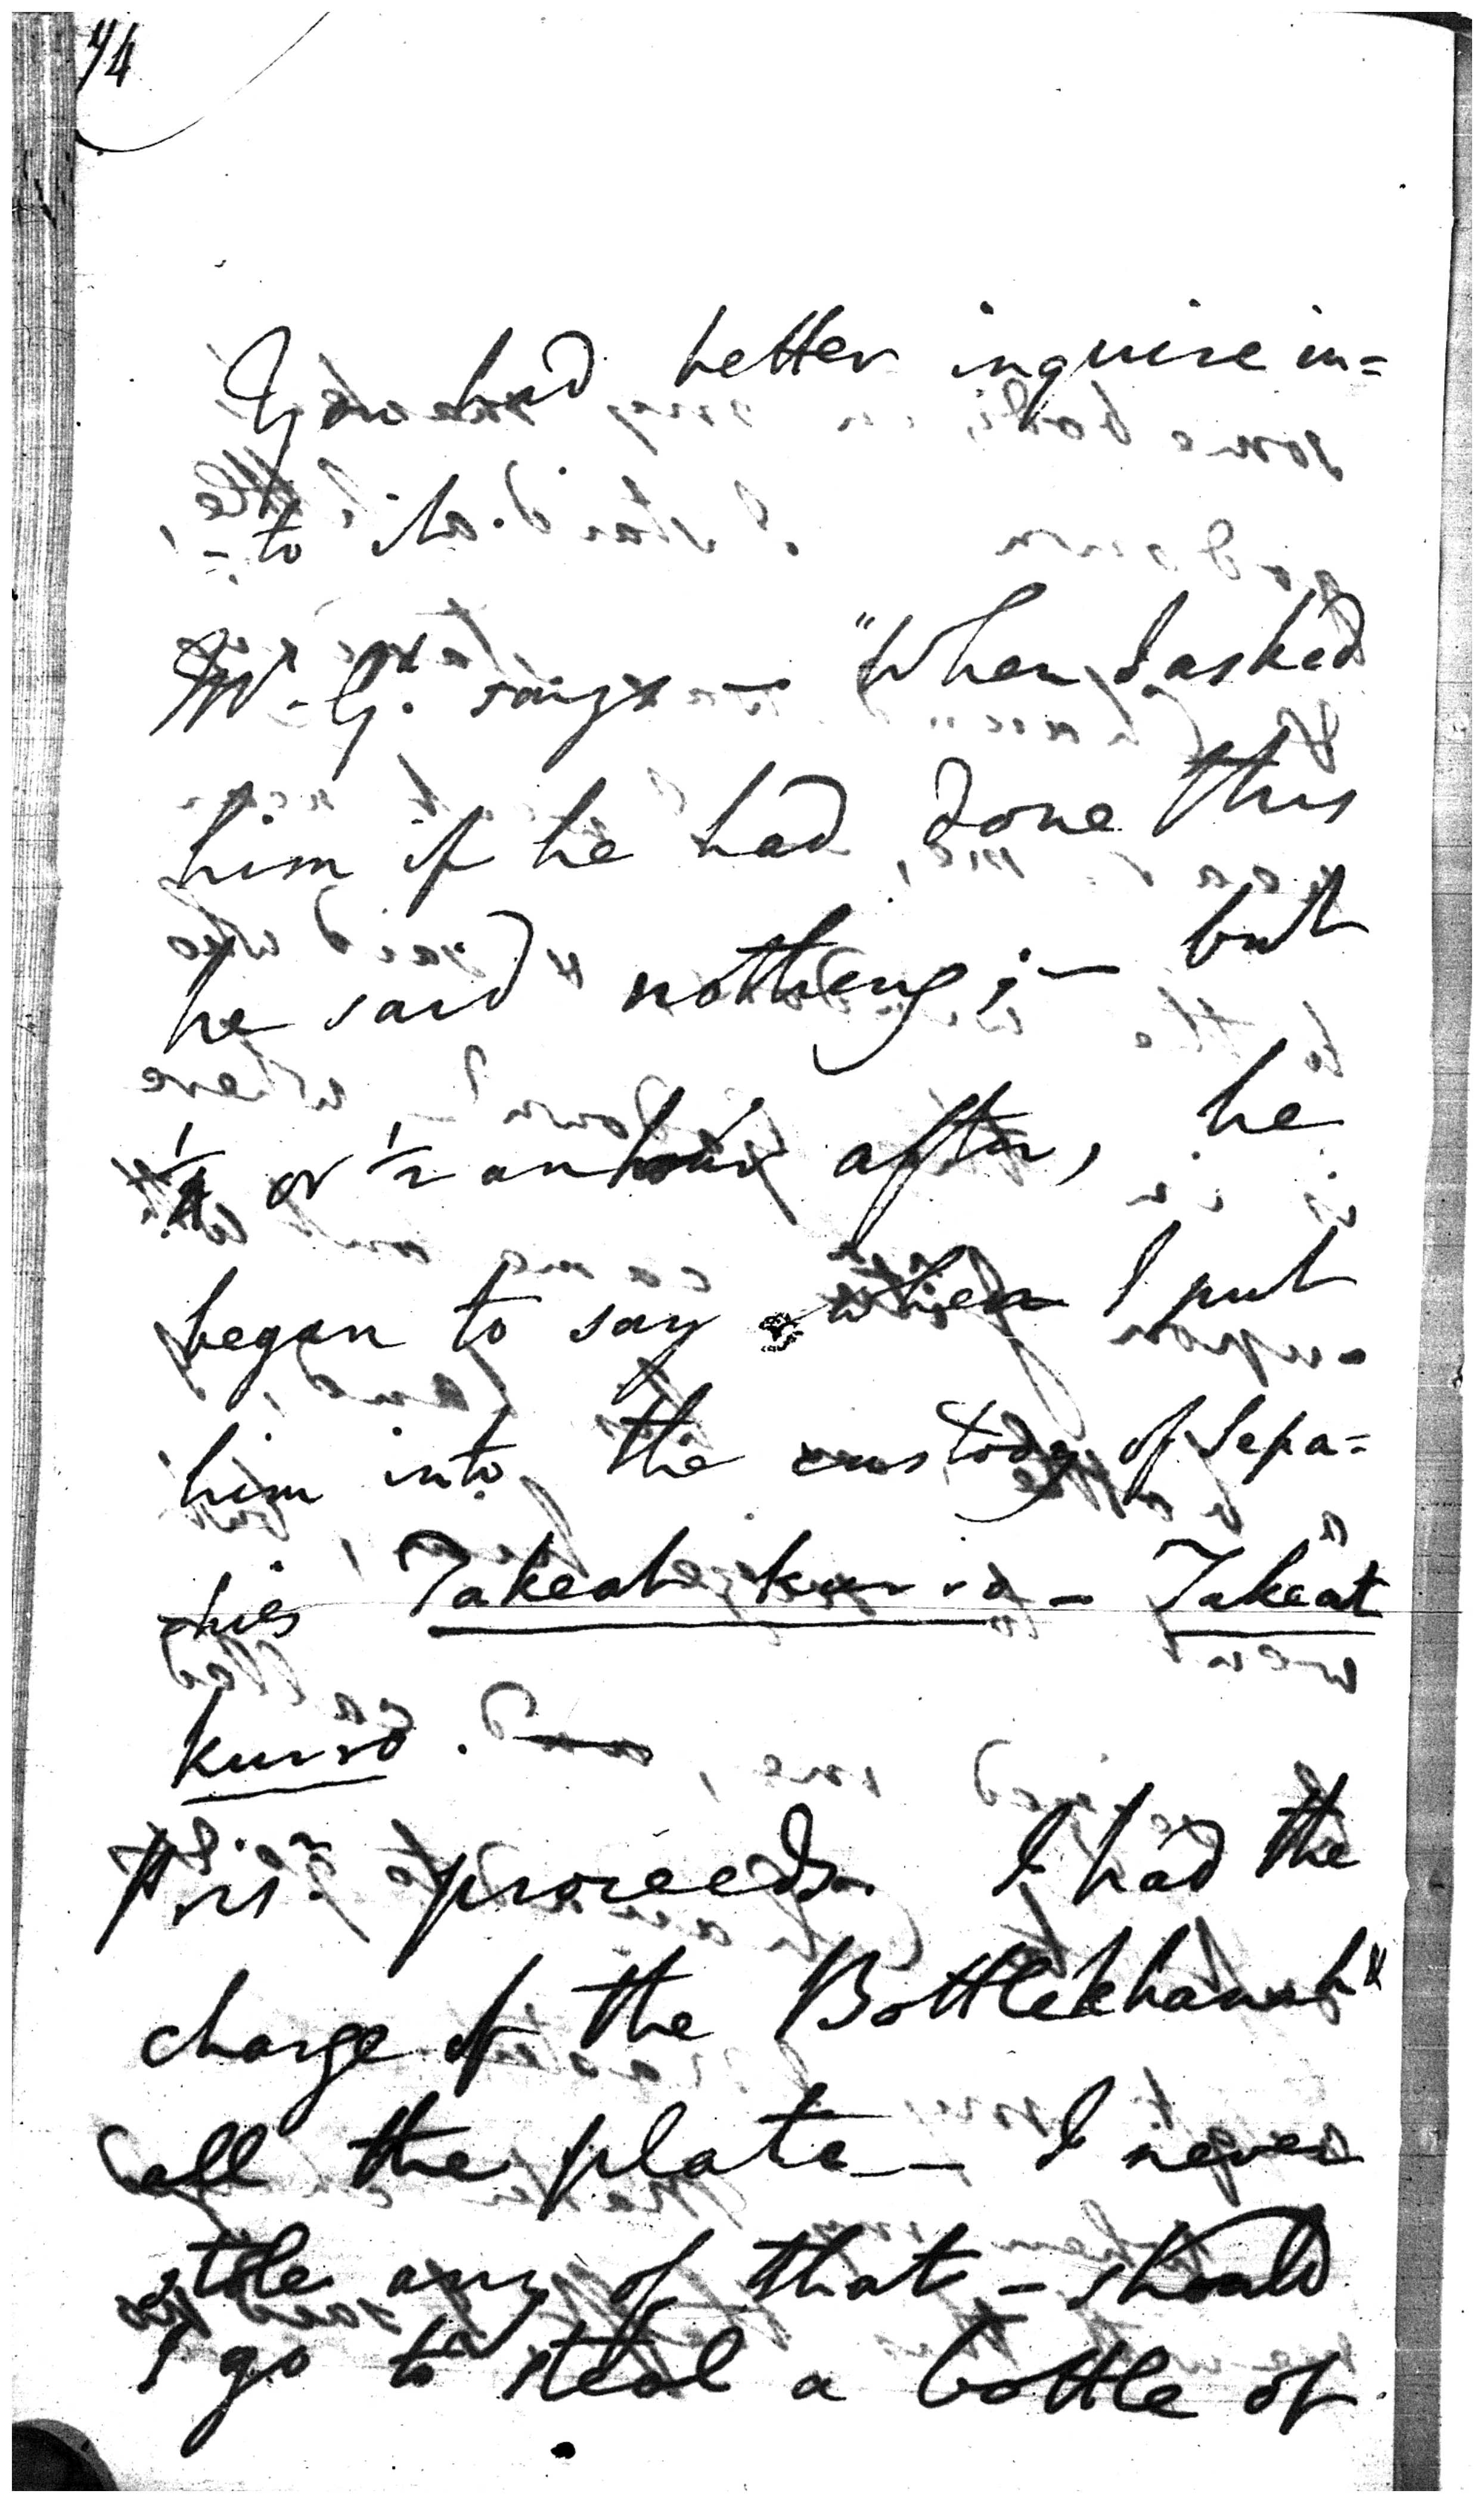 74
You had better inquire in=
=to it.
Mr. G. says — "When I asked
him if he had done this
he said nothing; — but
1/4 or 1/2 an hour after, he
began to say when I put
him into the custody of Sepa=
=hies Takeat kurro - Takeat
kurro.
Prisr. proceeds. I had the
charge of the Bottlekhanah"
all the plate — I never
stole any of that - should
I go to steal a bottle of